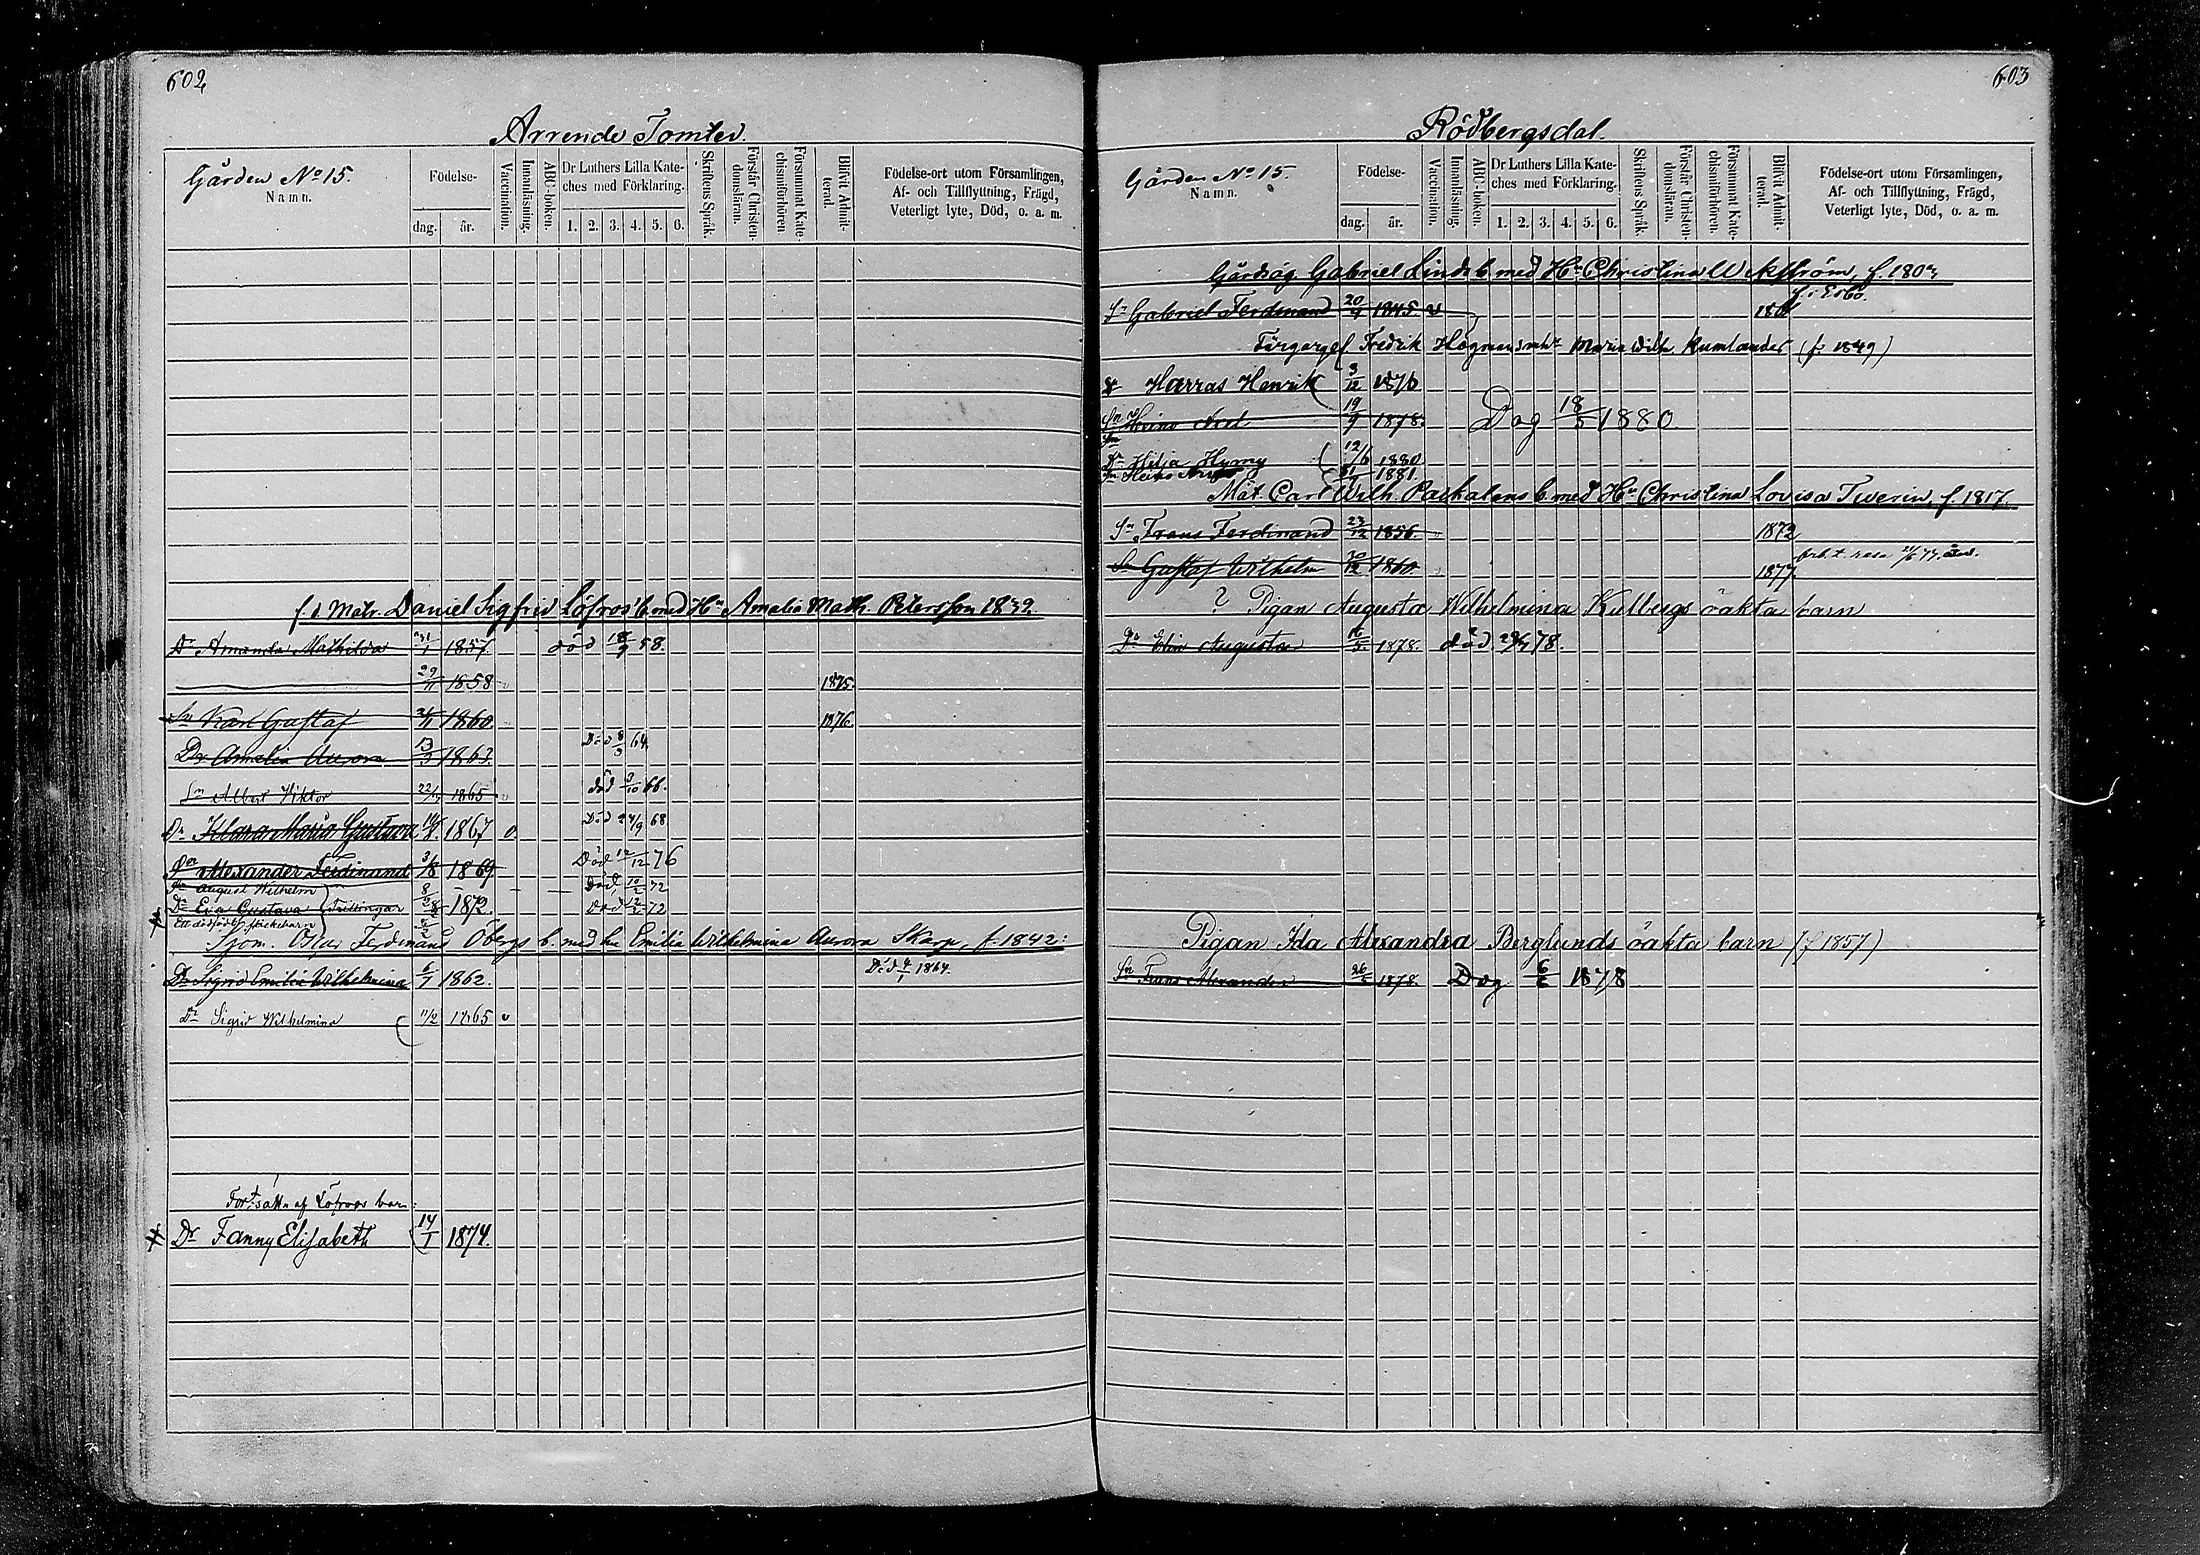 602
Arrende Tomter.
Gården No 15.
Namn.
Födelse-
dag. år.
Vaccination.
Innanläsning.
ABC-boken.
Dr Luthers Lilla Kate-
ches med Förklaring.
1. 2. 3. 4. 5. 6.
Skriftens Språk.
Förstår Christen-
domsläran.
Försummat Kate-
chismiförhören
Blifvit Admit-
terad.
Födelse-ort utom Församlingen,
Af- och Tillflyttning, Frägd,
Veterligt lyte, Död, o. a. m.
f d Matr. Daniel Sigfrid Löfroos' b med Hu Amalia Math. Petersson 1832.
Dr Amanda Mathilda 31/1 1857. död 18/9 58.
29/11 1858 1875.
Sn Karl Gustaf 21/11 1860. 1876.
Dr Amalia Aurora 13/3 1863. Död 8/3 64.
Sn Albert Viktor 1865 död 3/10 66.
Dr Klara Maria Gustava 1867 v Död 24/9 68
Alexander Ferdinand 3/8 1869 Död 12/12 76
Sn August Wilhelm 8/2 Död 10/2 72
Dr Eva Gustava Trillingar 8/2 1872. död 12/2 72
Ett dödfödt flickebarn
Sjöm. Oskar Ferdinand Öbergs b. med hu Emilia Wilhelmina Aurora Skarp f. 1842:
Dr Sigrid Emilia Wilhelmina 6/7 1862. Död 4/1 1864.
Dr Sigrid Wilhelmina 11/2 1865 v
Fortsättn af Löfroos barn:
Dr Fanny Elisabeth 14/1 1874.
603
Rödbergsdal.
Gården No 15.
Namn.
Födelse-
dag. år.
Vaccination.
Innanläsning.
ABC-boken.
Dr Luthers Lilla Kate-
ches med Förklaring.
1. 2. 3. 4. 5. 6.
Skriftens Språk.
Förstår Christen-
domsläran.
Försummat Kate-
chismiförhören.
Blifvit Admit-
terad.
Födelse-ort utom Församlingen,
Af- och Tillflyttning, Frägd,
Veterligt lyte, Död, o. a. m.
Gårdsäg Gabriel Linds b med Hu Christina U Ekström, f. 1803
Sn Gabriel Ferdinand 20/4 1845. v
Färgargef. Fredrik Högmans mhr Maria Wilh. Kumlander (f. 1849)
Harras Henrik 3/12 1876
Sn Heino Axel 19/9 1878. Dog 18/5 1880
Dr Hilja Hymy 12/6 1880
1881
Mat. Carl Wilh. Packalens b med Hu Christina Lovisa Twerin, f. 1817.
Sn Frans Ferdinand 23/12 1856. 1872
Sn Gustaf Wilhelm 20/12 1860. 1877.
? Pigan Augusta Wilhelmina Kulbergs oäkta barn
Dr Elin Augusta 16/3 1878. död 78.
Pigan Ida Alexandra Berglunds oäkta barn (f 1857)
Sn Frans Alexander 1878. Dog 6/6 1878